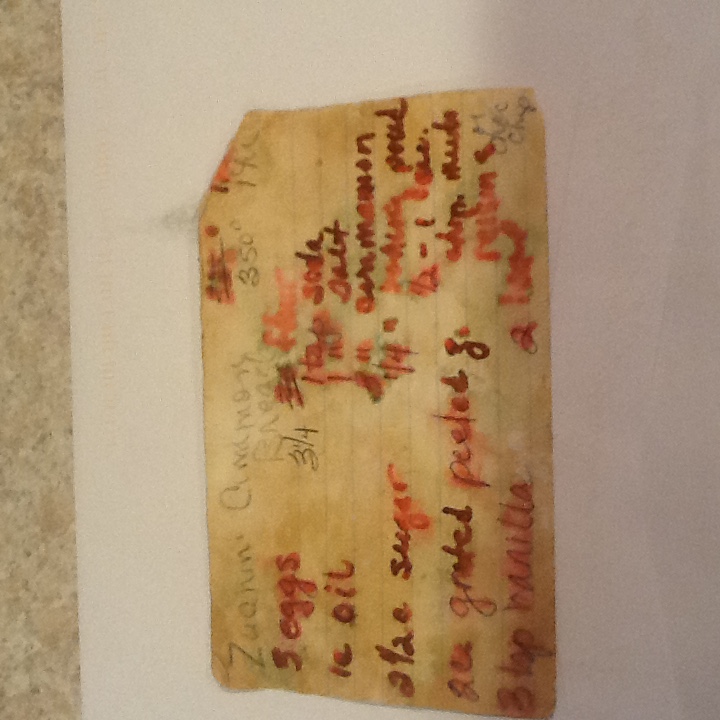 Zucinni Cinnamon
Bread
350° 1 hr
3 eggs
1c oil
2 1/2 c sugar
2 c grated peeled z.
3 tsp vanilla
3 1/4 flour
1 tsp soda
1 " salt
3 " cinnamon
1/4 " baking powd
1/2 - 1 c
chop. nuts
raisins
choc
chip
2 loaf